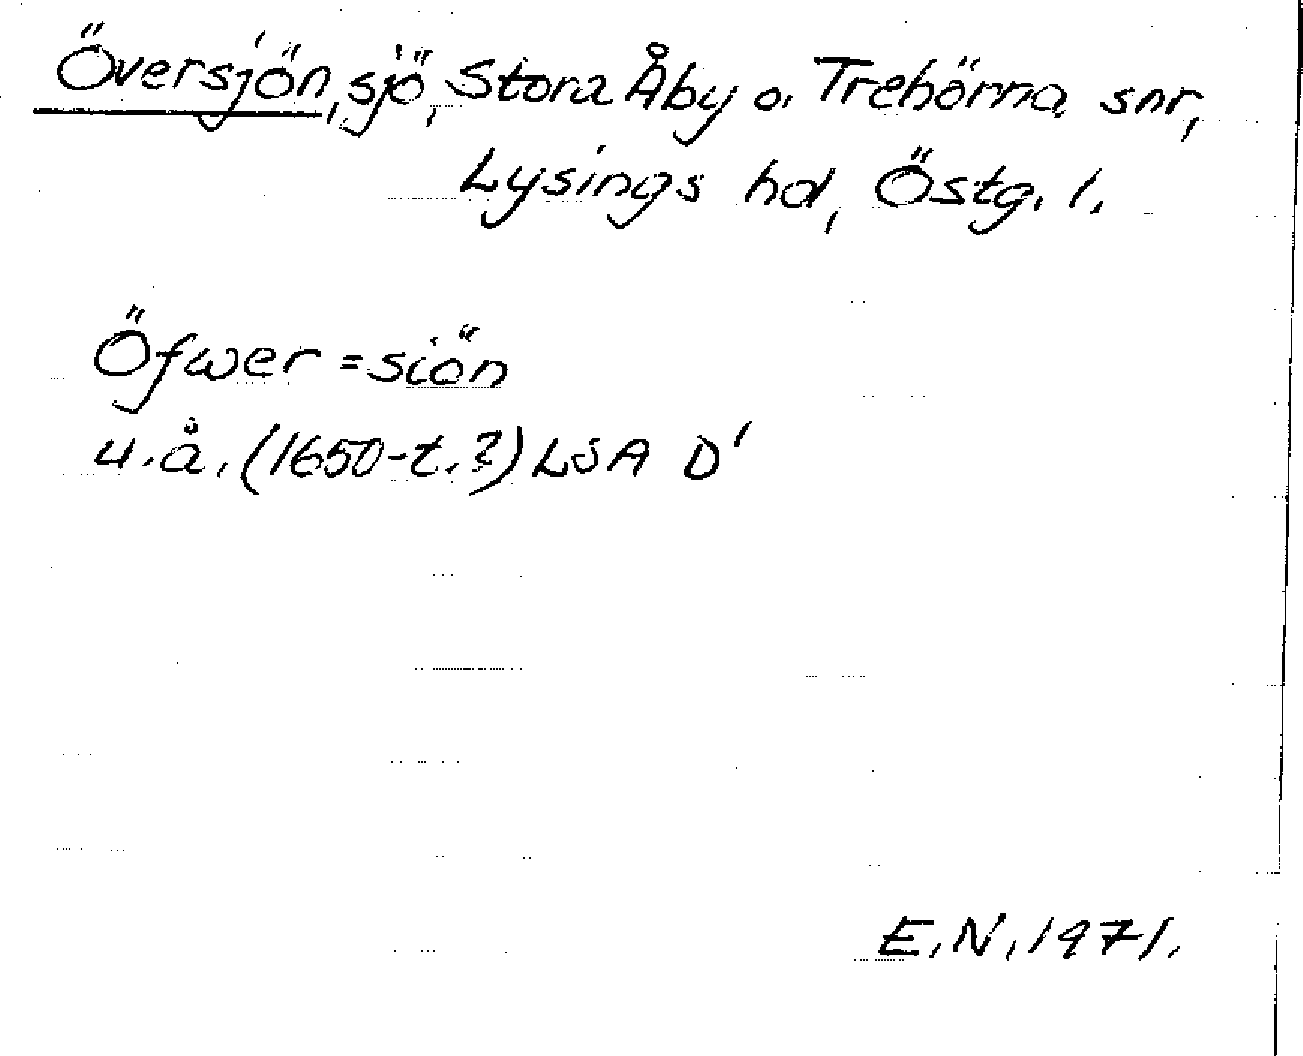 Översjön, sjö, Stora Åby o. Trehörna snr,
Lysings hd, Östg. l.
Öfwer=siön
u.å. (1650-t.?) LSA D'
E.N. 1971.